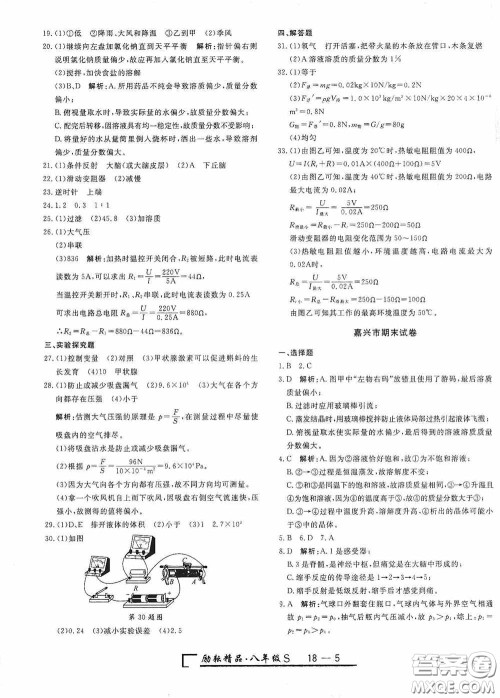 19.(1)①低 ②降雨、大风和降温 ③乙到甲 (2)季风
20.(1)继续向左盘加氯化钠直到天平平衡 解析:指针偏右则
说明氯化钠质量偏少,故应再加入氯化钠直至天平平衡。
(2)搅拌,加快食盐的溶解
(3)B、D 解析:A.所用药品不纯会导致溶质偏少,质量分数
偏小;
B.俯视量取水时,导致实际量的水偏少,质量分数偏大;
C.配完后转移,因溶液具有均一稳定性,不影响质量分数;
D.将量好的水从量筒里倒入烧杯时,洒出一些水,导致质
量分数偏大。
21.(1)条件反射 大脑(或大脑皮层) (2)A 下丘脑
22.(1)滑动变阻器 (2)减慢
23.逆时针 上端
24.1.2 0.3 1:1
25.(1)过滤 (2)45.8 (3)加溶质
26.(1)大气压
(2)串联
(3)836 解析:加热时温控开关闭合,R₁被短路,此时电流
表读数为5A,可以求出R₂=U/I=220V/5A=44Ω,
当温控开关断开时,R₁、R₂串联,此时电流表读数为0.25A
可求出电路总电阻R总=U/I=220V/0.25A=880Ω,
∴R₁=R总-R₂=880Ω-44Ω=836Ω。
三、实验探究题
27.(1)控制变量 (2)对照 (3)甲状腺激素可以促进蝌蚪的生
长发育 (4)10 甲状腺
28.(1)防止或减少吸盘漏气 (2)9.6×10⁴ (3)大气在各个方
向都存在压强 (4)小于
解析:估测大气压强的原理是p=F/S,在测量过程中尽量使
吸盘内的空气排尽。
(1)将吸盘沾水是防止或减少吸盘漏气。
(2)根据p=F/S=96N/10×10⁻⁴m²=9.6×10⁴Pa。
(3)因为大气向各个方向都有压强,故吸盘均不会掉下来。
(4)拿一个吹风机自上而下吹,因吸盘右侧空气流速快,压
强小,故示数小于F。
29.(1)D、E 排开液体的体积 (2)小于 (3)2.7×10³
30.(1)如图
第30题图
(2)0.24 (3)减小实验误差 (4)2.5
四、解答题
31.(1)氧气 打开活塞,把带火星的木条放在管口,木条复燃
(2)A溶液的溶质质量分数是10%
32.(1)等于
(2)F浮=mg=0.02kg×10N/kg=0.2N
(3)F浮'=ρgV排=1.0×10³kg/m³×10N/kg×20×4×10⁻⁶
m³=0.8N
G物=F浮'=0.8N,m=G/g=80g
(4)偏小
33.(1)由图乙可知,温度为20℃时,热敏电阻阻值为400Ω,
U=I(R₁+R)=0.01A×(100Ω+400Ω)=5V
(2)由图乙可知,温度为40℃时,热敏电阻阻值为200Ω,电路
最大电流为0.02A:
R最小=U/I最大=5V/0.02A=250Ω
R滑最小=R最小-R=250Ω-200Ω=50Ω
滑动变阻器的电阻变化范围为50~150Ω
(3)热敏电阻阻值偏小,环境温度越高,电路电流最大为
0.02A时。
R总=U/I最大=5V/0.02A=250Ω
R=R总-R滑最大=250Ω-150Ω=100Ω
由图乙可知,能够测量的最高温度为50℃
嘉兴市期末试卷
一、选择题
1.B 2.C
3.D 解析:A.图甲中“左物右码”放错且使用了游码,最后溶质
质量分数偏小。
B.溶解时应用玻璃棒引流。
C.蒸发时,用玻璃棒搅拌防止液体局部过热引起液体飞溅;
D.俯视量取水使实际的水偏少,最后得到的溶液溶质质量
分数偏大。
4.C 解析:A.因为②溶液恰好饱和,故①为不饱和溶液;
B.①→②的过程是恒温蒸发,故溶解度不变。
C.③④是不同温度的饱和溶液,④的质量分数大于③的质
量分数,故④的温度高于③,④的质量分数大于③;
D.因为④的温度高于③,故②→④析出的晶体总量可能小
于②→③。
5.B 6.D 7.A
8.D 解析:A.1是感受器;
B.3是脊髓,是神经中枢,但疼痛是在大脑中形成的。
C.缩手反应的传递路线是1→2→3→4→5;
D.缩手反射先于痛觉形成。
9.A 解析:气球口外翻套住瓶口,气球内气体与外界空气相
通,故p₂=p₀,抽气后瓶内气压减小,故p₁小于p₀,
故有p₁＜p₂=p₀。
励耘精品·八年级S 18 — 5